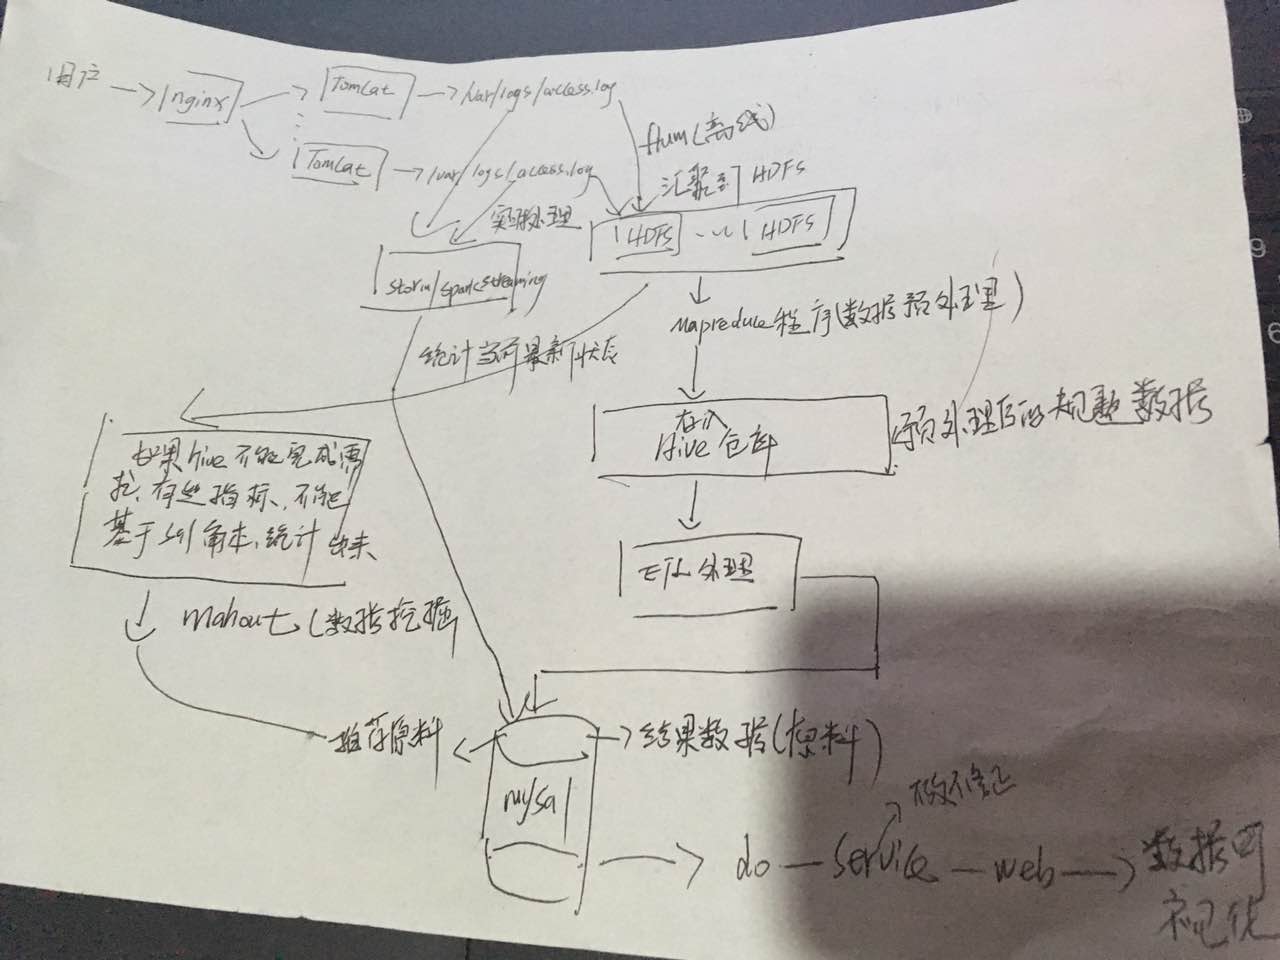 用户
nginx
Tomcat
/var/logs/access.log
Tomcat
/var/logs/access.log
flum(离线)
汇聚到 HDFS
实时处理
HDFS
HDFS
storm/sparkstreaming
Mapreduce程序(数据预处理)
统计当前最新状态
存入
Hive仓库
预处理后的规整数据
如果hive不能完成需
求,有些指标,不能
基于sql角本,统计出来
ETL处理
Mahout(数据挖掘
推荐原料
结果数据(原料)
mysql
do
service
web
数据可
视化
9
6